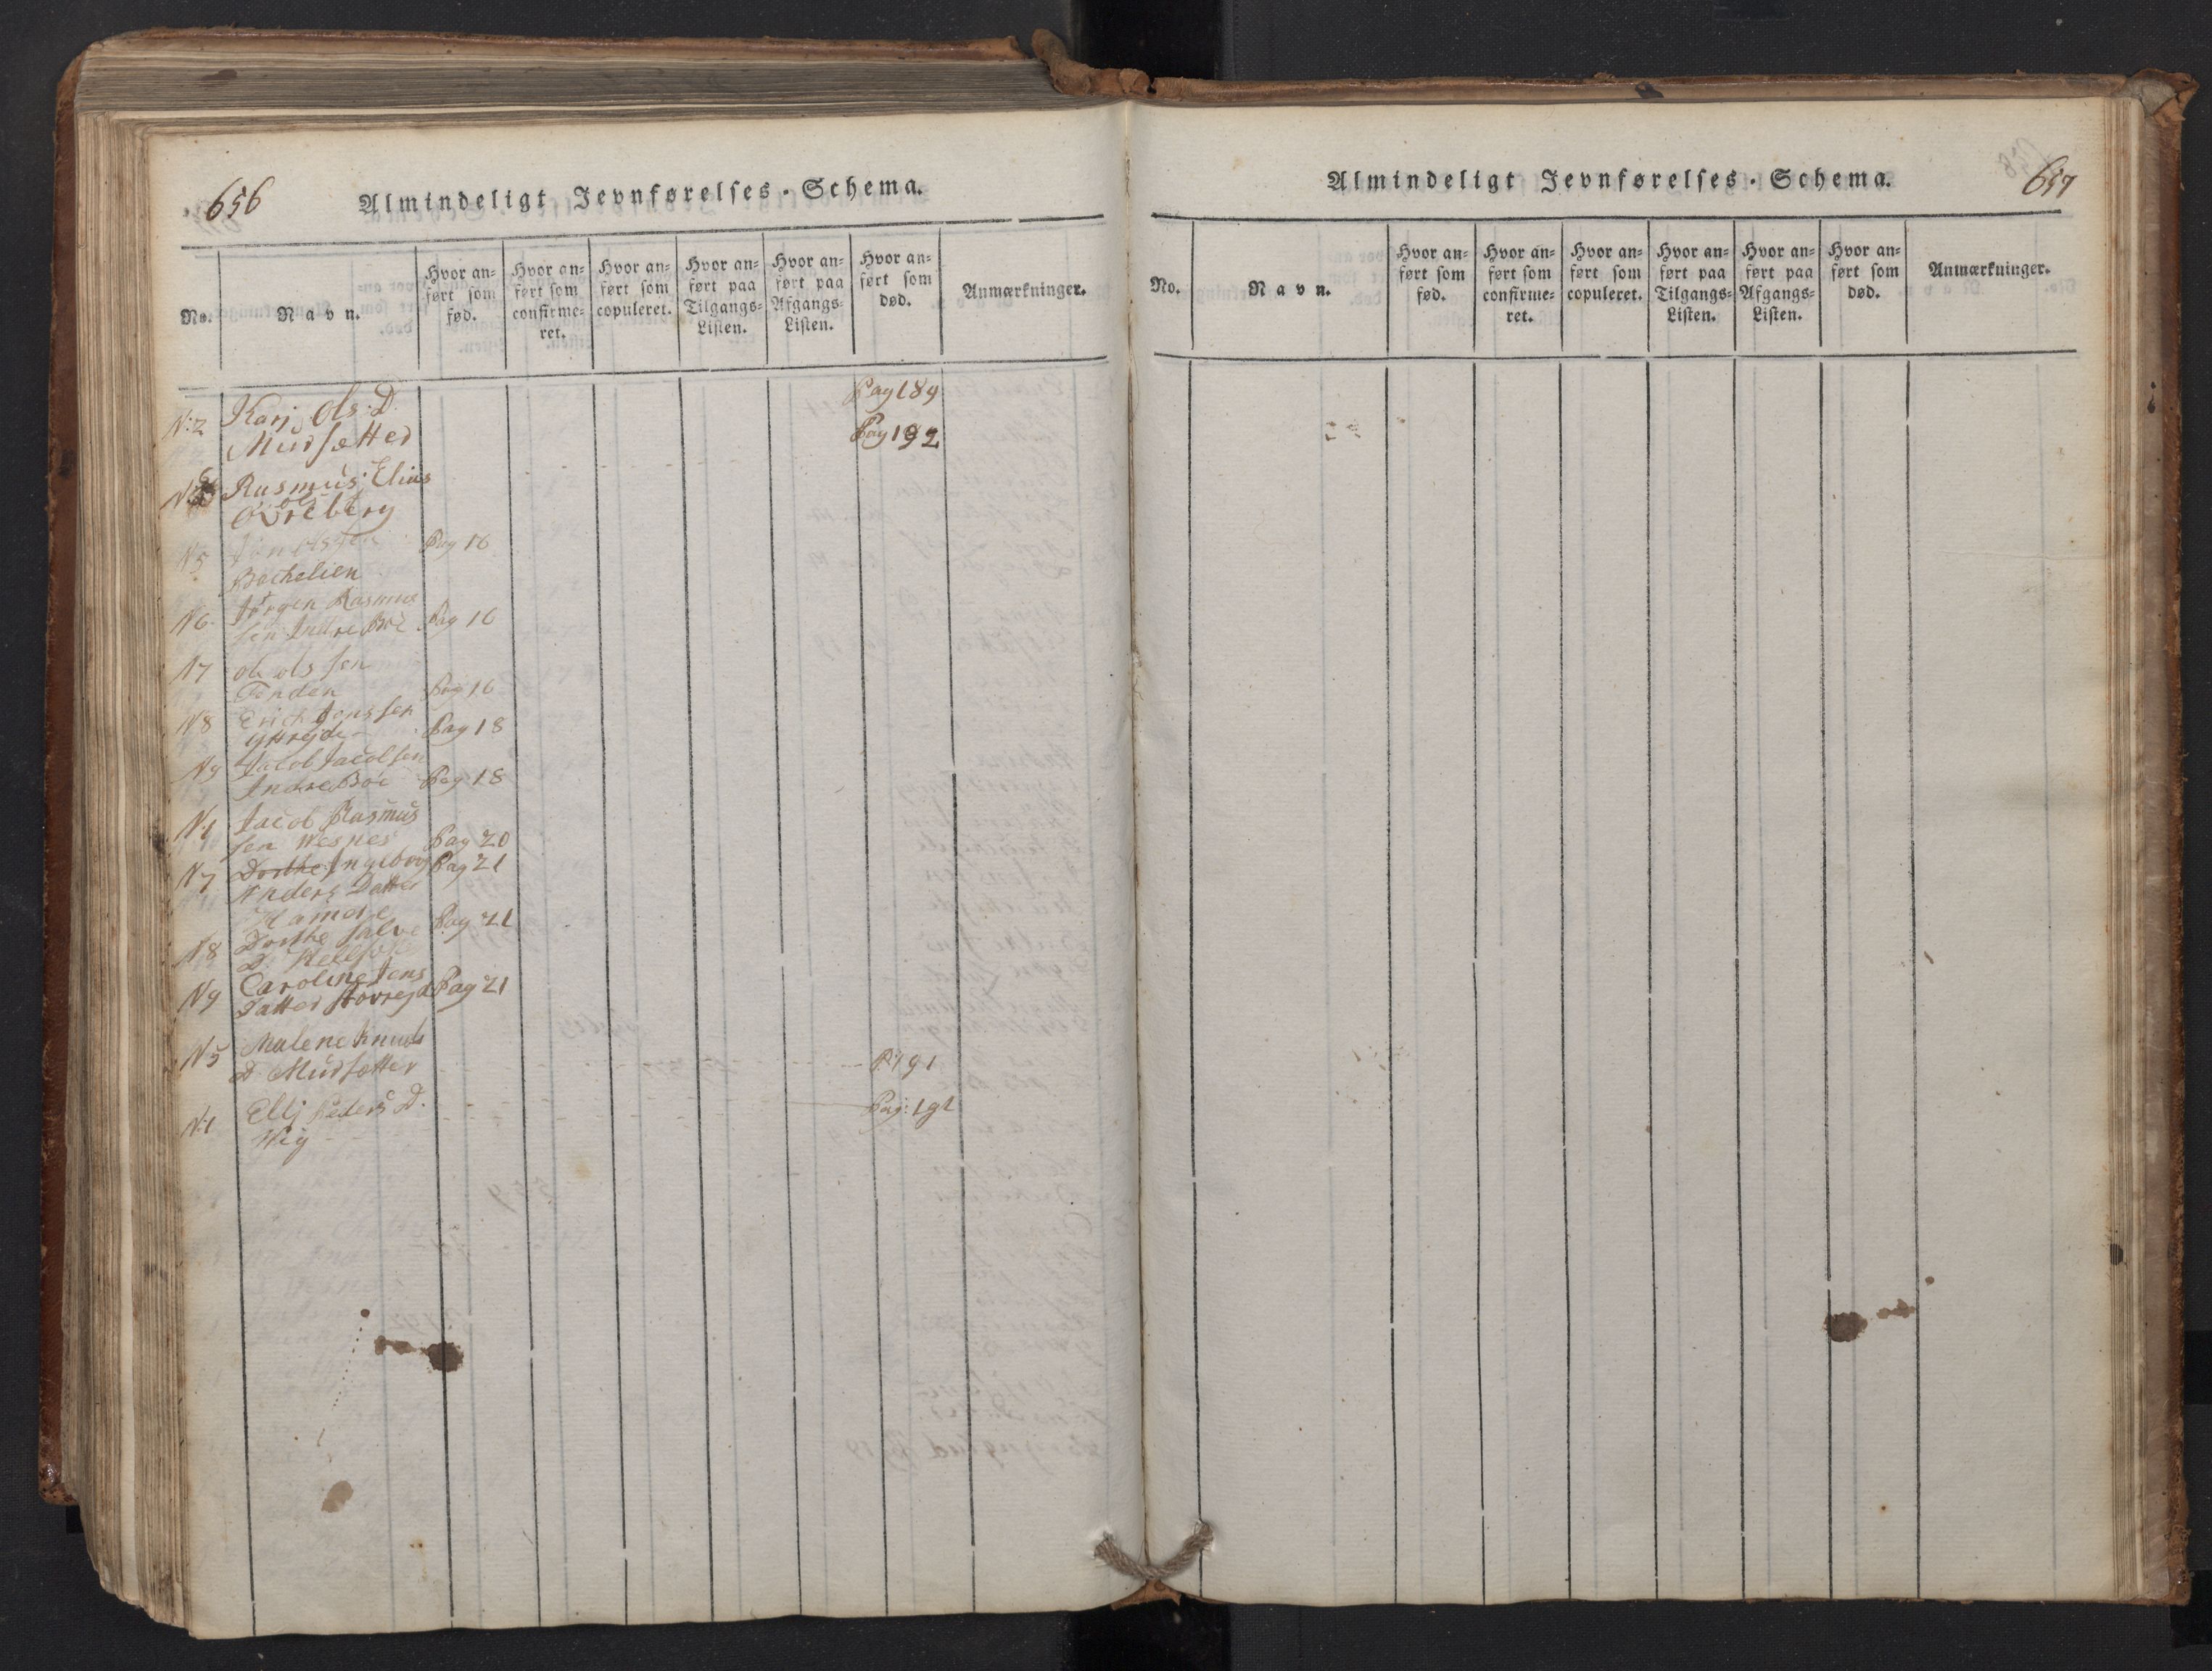 656
Almindeligt Jevnførelses-Schema.
No.
Navn.
Hvor an-
ført som
fød.
Hvor an-
ført som
confirme-
ret.
Hvor an-
ført som
copuleret.
Hvor an-
ført paa
Tilgangs-
Listen.
Hvor an-
ført paa
Afgangs-
Listen.
Hvor an-
ført som
død.
Anmærkninger.
N:2 Karj Ols: D. Pag 189
Mursetter Pag 192
Rasmus Elias
Ols
Øvreberg
N5 Pag 16
Bachelien
N6 Jørgen Rasmus
sen Indre Böe Pag 16
N7 ole ols sen
Finden Pag 16
N8 Erich Jens sen
Pag 18
N9 Jacob Jacobsen
Indre Böe Pag 18
N1 Jacob Rasmus
sen Wesnes Pag 20
N7 Dorthe Ingeborg Pag 21
Anders Datter
Hamre
N8 Dorthe Pag 21
D.
N9 Caroline Jens
Datter Pag 21
N5 Malene Knuds
D. Mursetter P. 191
N:1 Elij Peders D. Pag: 191
Wig
657
Almindeligt Jevnførelses-Schema.
No.
Navn.
Hvor an-
ført som
fød.
Hvor an-
ført som
confirme-
ret.
Hvor an-
ført som
copuleret.
Hvor an-
ført paa
Tilgangs-
Listen.
Hvor an-
ført paa
Afgangs-
Listen.
Hvor an-
ført som
død.
Anmærkninger.